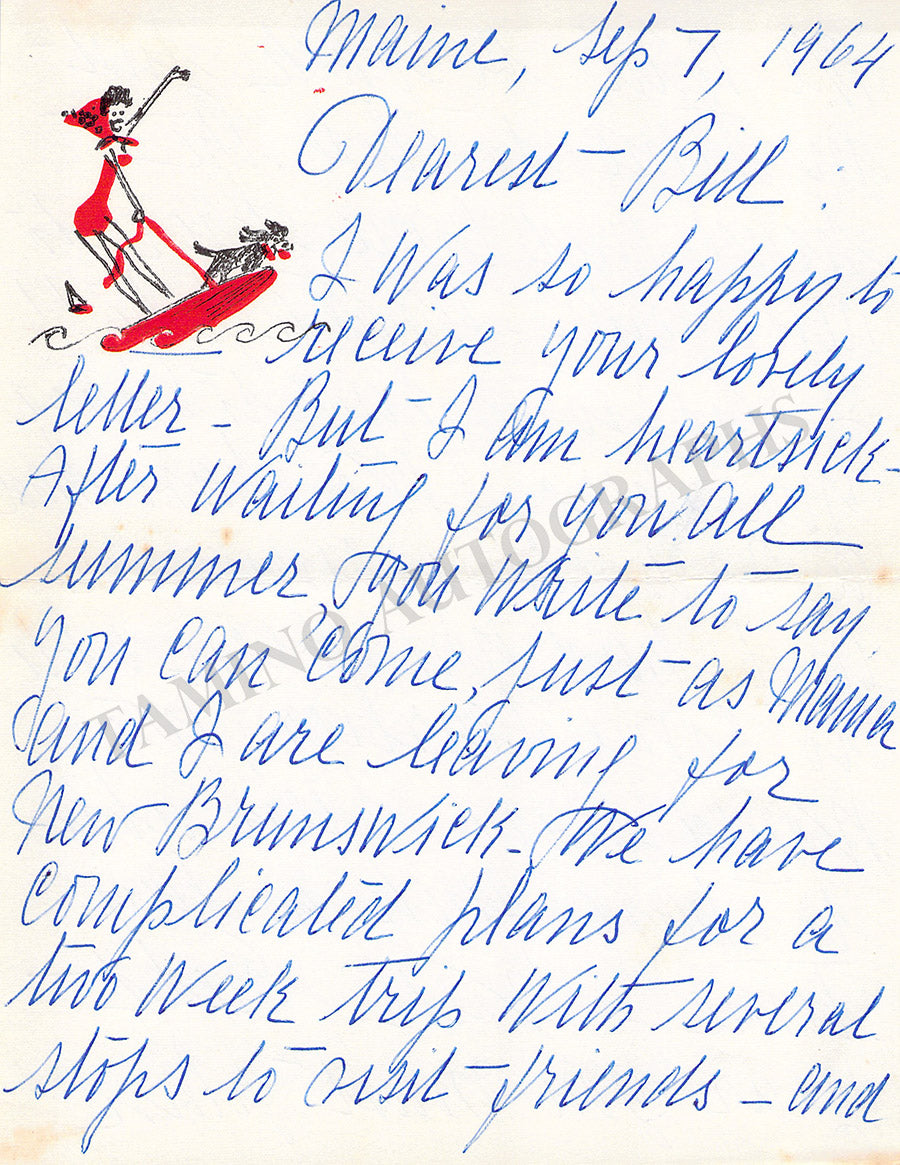 Maine, Sep 7, 1964
Dearest - Bill :
I was so happy to
receive your lovely
letter - But I am heartsick -
After waiting for you all
summer you write to say
you can come, just as Mainen
and I are leaving for
New Brunswick - We have
complicated plans for a
two week trip with several
stops to visit friends - and
TAMINO AUTOGRAPHS